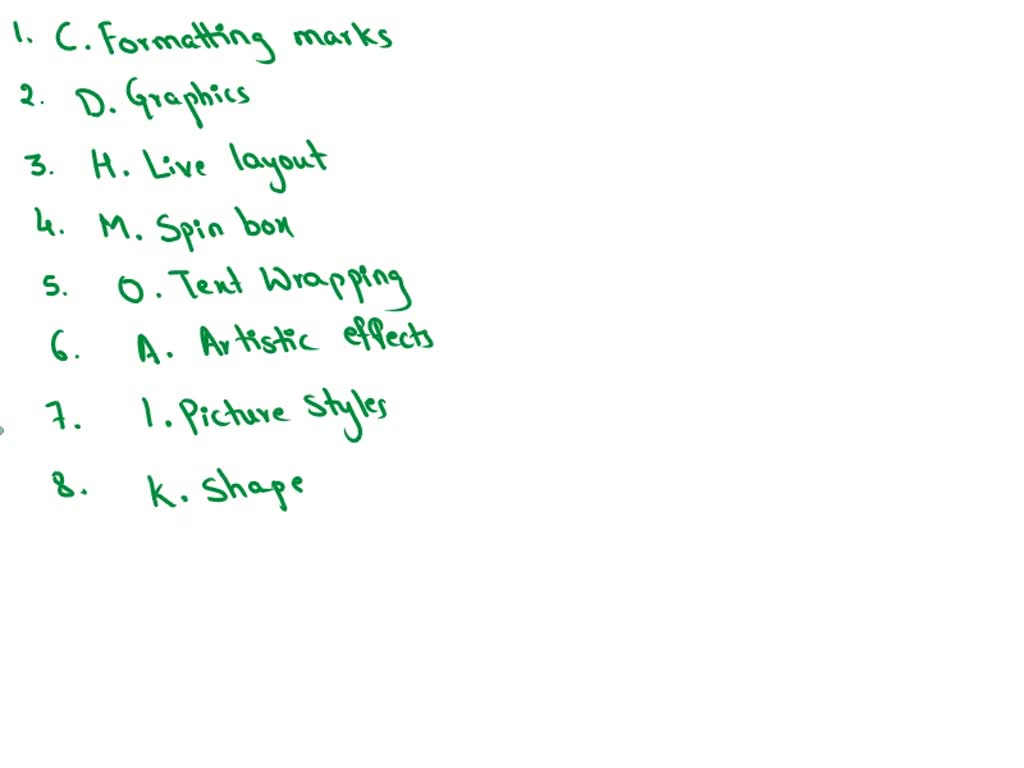 1. C. Formatting marks
2. D. Graphics
3. H. Live layout
4. M. Spin box
5. O. Text Wrapping
6. A. Artistic effects
7. I. Picture Styles
8. K. Shape